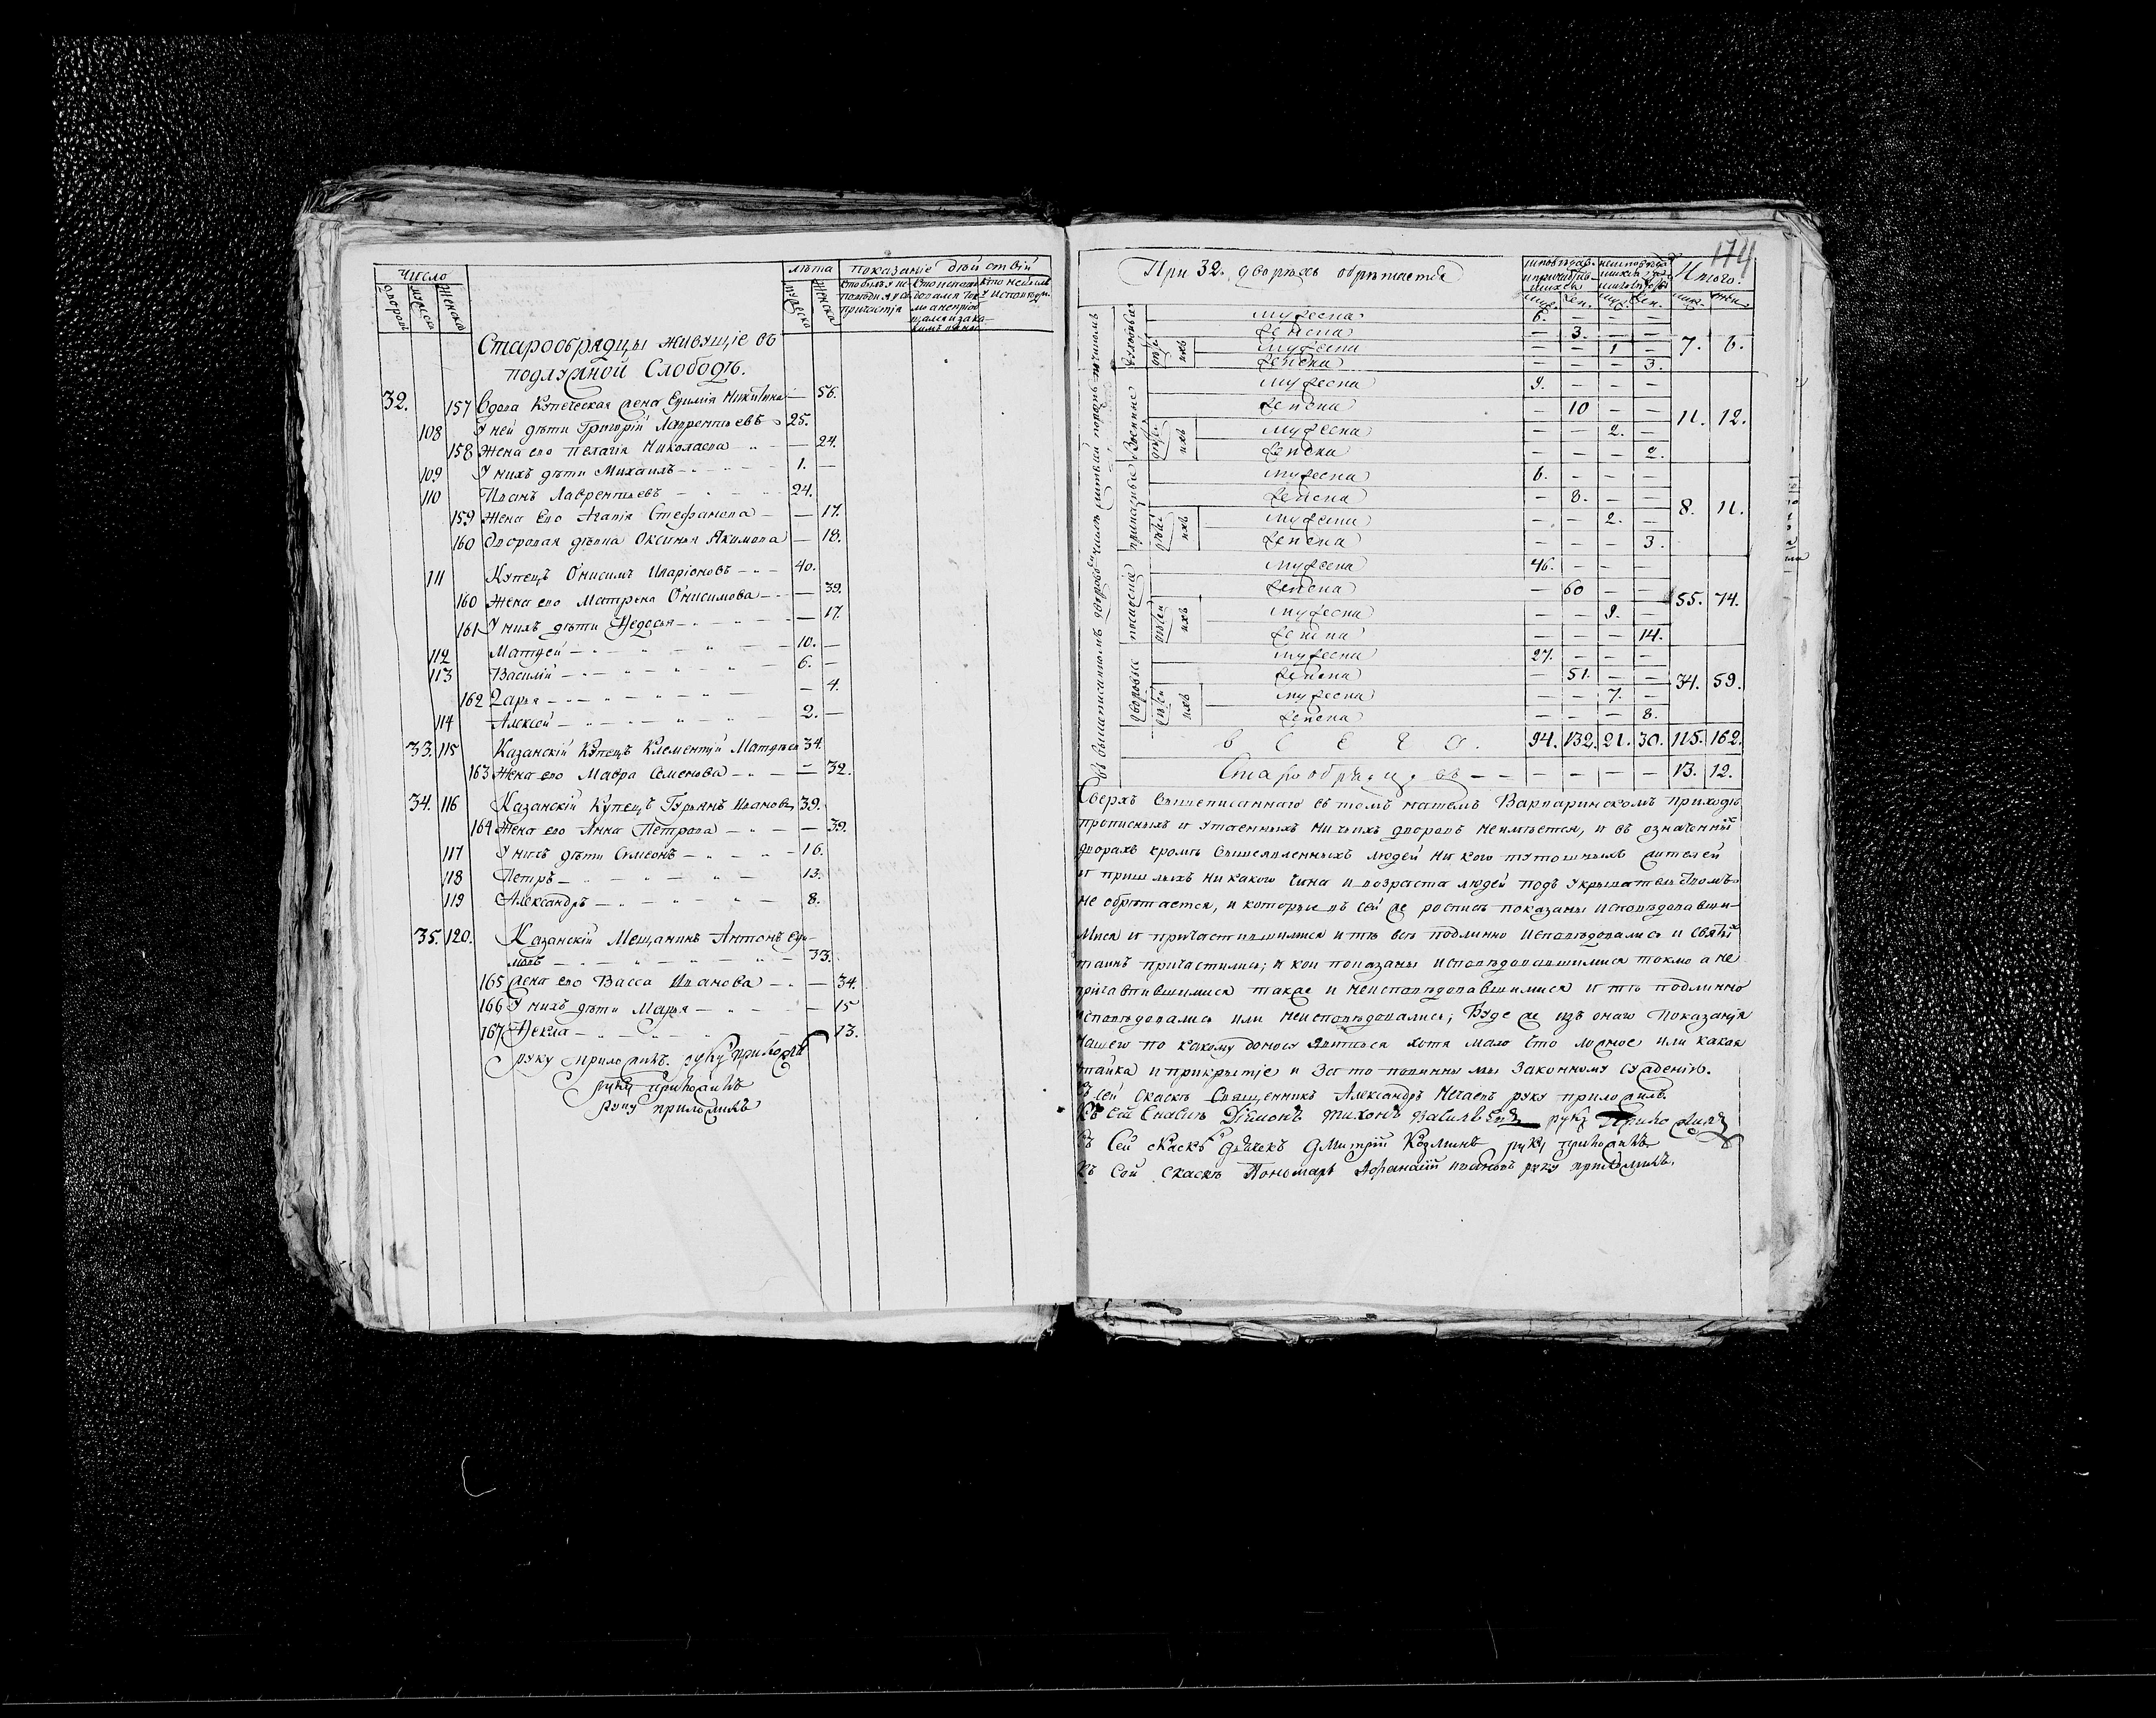 Число
лѣта
показаніе дѣйствій
дворовъ
мужеска
женска
мужеска
женска
Старообрядцы живущіе въ
подлужной Слободѣ.
32. 157 Вдова Купеческая жена Евпмія Никитина — 56.
108 У ней дѣти Григорій Лаврентьевъ 25.
158 Жена его Пелагія Николаева — 24.
109 У нихъ дѣти Михаилъ 1. —
110 Иванъ Лаврентьевъ 24.
159 Жена Его Агапія Стефанова — 17.
160 Дворовая дѣвка Оксинья Якимова — 18.
111 Купецъ Онисимъ Иларіоновъ 40.
160 Жена его Матрена Онисимова — 39.
161 У нихъ дѣти Ѳедосья — 17.
112 Матвей 10. —
113 Василій 6. —
162 Дарья — 4.
114 Алексей 2. —
33. 115 Казанскій Купецъ Клементій Матвѣевъ 34.
163 Жена его Мавра Семенова — 32.
34. 116 Казанскій Купецъ Гурьянъ Ивановъ 39.
164 Жена его Анна Петрова — 39.
117 У нихъ дѣти Симеонъ 16.
118 Петръ 13.
119 Александръ 8.
35. 120. Казанскій Мещанинъ Антонъ
33.
165 Жена его Васса Иванова — 34.
166 У нихъ дѣти Марья — 15
167 Ѳекла 13.
руку приложилъ. руку приложилъ
руку приложилъ
руку приложилъ
174
При 32. дворѣхъ обрѣтается
Итого.
муж. жен. муж. жен. муж. жен.
духовныя
мужеска 6. — — —
женска — 3. — —
дѣтей ихъ
мужеска — — 1. —
женска — — — 3.
7. 6.
военные
мужеска 9. — — —
женска — 10 — —
дѣтей ихъ
мужеска — — 2. —
женска — — — 2.
11. 12.
приказные
мужеска 6. — — —
женска — 8. — —
дѣтей ихъ
мужеска — — 2. —
женска — — — 3.
8. 11.
посацкие
мужеска 46. — — —
женска — 60 — —
дѣтей ихъ
мужеска — — 9. —
женска — — — 14.
55. 74.
дворовые
мужеска 27. — — —
женска — 51. — —
дѣтей ихъ
мужеска — — 7. —
женска — — — 8.
34. 59.
всего. 94. 132. 21. 30. 115. 162.
Старообрядцовъ — — — — 13. 12.
Сверхъ вышеписаннаго въ томъ нашемъ Варваринскомъ приходѣ
прописныхъ и утаенныхъ ничьихъ дворовъ неимѣется, и въ означенныхъ
дворахъ кромѣ вышеявленныхъ людей ни кого тутошныхъ жителей
и пришлыхъ никакого чина и возраста людей подъ укрывательствомъ
не обрѣтается, и которые въ сей же росписѣ показаны исповѣдавши-
мися и причастившимися и тѣ всѣ подлинно исповѣдовались и святыхъ
таинъ причастились; и кои показаны исповѣдовавшимися токмо а не
причастившимися такъже и неисповѣдовавшимися и тѣ подлинно
исповѣдовались или неисповѣдовались; Буде же изъ онаго показанія
нашего по какому доносу явиться хотя мало что ложное или какая
тайка и прикрытіе и за то повинны мы законному сужденію.
Къ сей скаскѣ Священникъ Александръ Нечаевъ руку приложилъ.
Къ сей скаскѣ Діаконъ Тихонъ Васильевъ руку приложилъ
Къ Сей скаскѣ дьячекъ Дмитрій Козминъ руку приложилъ
Къ Сей скаскѣ Пономарь Афанасій Ивановъ руку приложилъ.